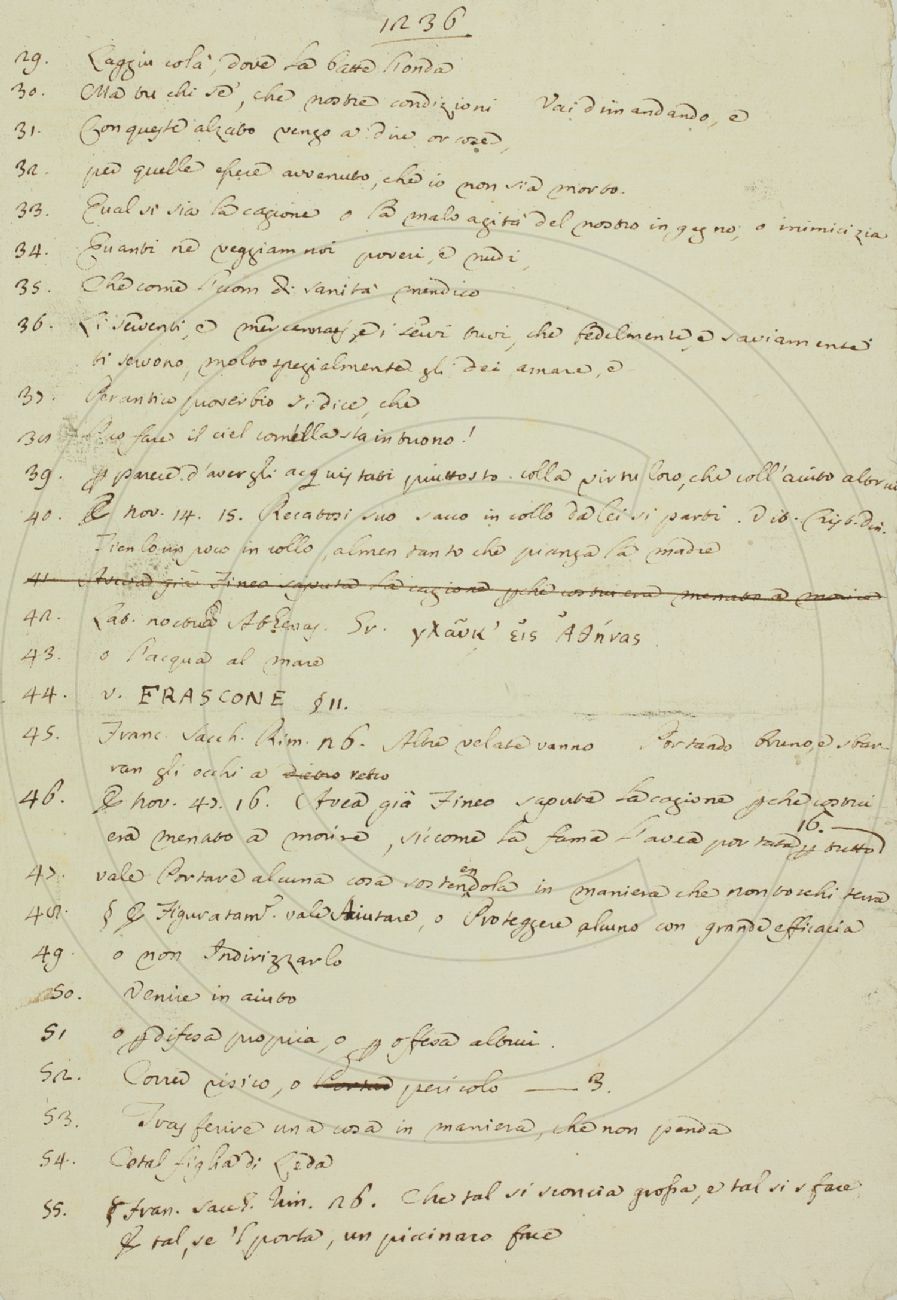 1236
29. Laggiu colà, dove la batte l'onda
30. Ma tu chi se', che nostre condizioni Vai dimandando, e
31. Con queste alzato vengo a dire or cose,
32. per quelle essere avvenuto, che io non sia morto.
33. Qual si sia la cagione o la malvagità del nostro ingegno, o inimicizia
34. Quanti ne veggiam noi poveri, e nudi,
35. Che come l'uom di sanità mendico
36. Li serventi, e mercennaj, e i servi tuvi, che fedelmente, e saviamente
ti servono, molto spezialmente gli dei amare, e
37. Per antico proverbio si dice, che
38. Può fare il ciel com'ella sta in tuono!
39. p parere d'avergli acquistati piuttosto colla virtù loro, che coll'aiuto altrui
40. § nov. 14. 15. Recatosi suo sacco in collo da lei si partì. Dit.
Tienlo un poco in collo, almen tanto che pianga la madre
41. Avea già Fineo saputa la cagione pchè costui era menato a morire
42. Lat. noctuas Athenas. Gr. γλαῦκ' εἰς Ἀθήνας.
43. o l'acqua al mare
44. v. FRASCONE § 11.
45. Franc. Sacch. Rim. 26. Altre velate vanno Portando bruno, e sbar-
ran gli occhi a dietro retro
46. § nov. 47. 16. Avea già Fineo saputa la cagione pchè costui
era menato a morire, siccome la fama l'avea portata p tutto 16.
47. vale Portare alcuna cosa sostenendola in maniera che non tocchi terra
48. § § Figuratam. vale Aiutare, o Proteggere alcuno con grande efficacia
49. o non Indirizzarlo
50. Venire in aiuto
51 o p difesa propria, o p offesa altrui.
52. Correr risico, o Portar pericolo — 3.
53. Trasferire una cosa in maniera, che non penda
54. Cotal figlia di Leda
55. § Fran. Sacch. Rim. 26. Che tal si sconcia grossa, e tal si sface
§ tal, se 'l porta, un piccinaro face